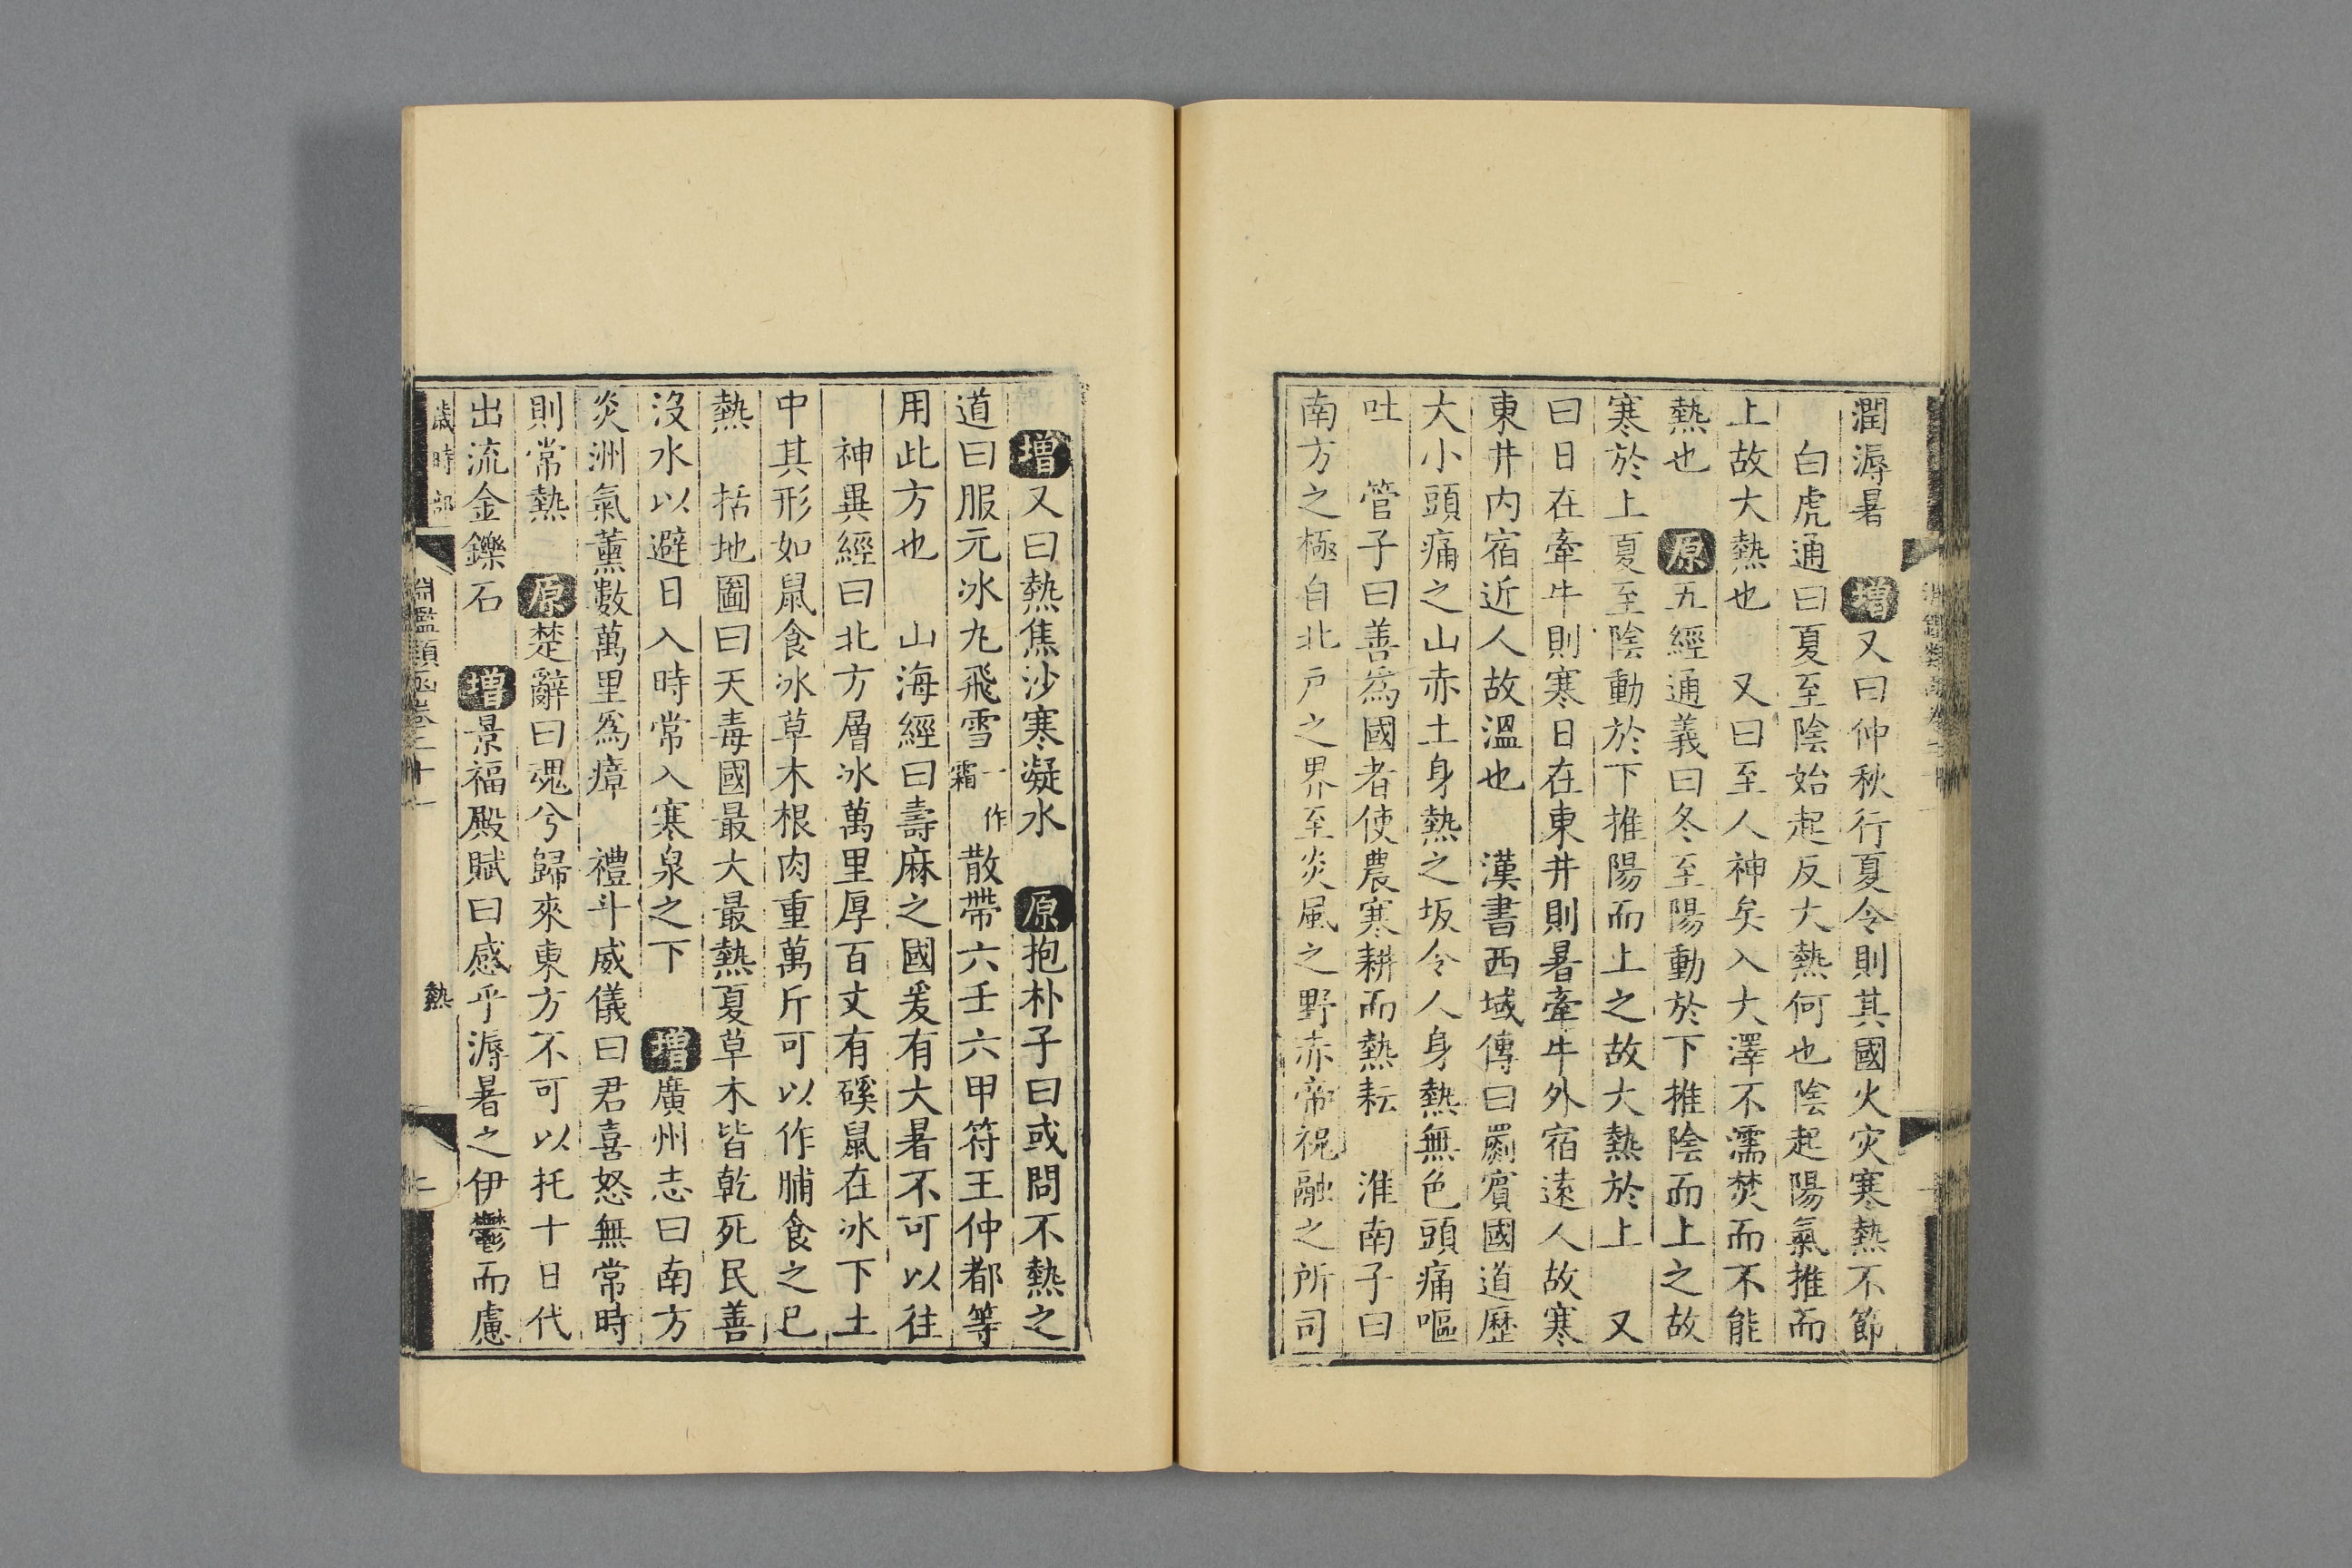 潤溽暑 增又曰仲秋行夏令則其國火灾寒熱不節
白虎通曰夏至陰始起反大熱何也陰起陽氣推而
上故大熱也 又曰至人神矣入大澤不濡焚而不能
熱也 原五經通義曰冬至陽動於下推陰而上之故
寒於上夏至陰動於下推陽而上之故大熱於上 又
曰日在牽牛則寒日在東井則暑牽牛外宿遠人故寒
東井内宿近人故溫也 漢書西域傳曰罽賓國道歷
大小頭痛之山赤土身熱之坂令人身熱無色頭痛嘔
吐 管子曰善為國者使農寒耕而熱耘 淮南子曰
南方之極自北戸之界至炎風之野赤帝祝融之所司
增又曰熱焦沙寒凝水 原抱朴子曰或問不熱之
道曰服元冰丸飛雪一作霜散帶六壬六甲符王仲都等
用此方也 山海經曰壽麻之國爰有大暑不可以往
神異經曰北方層冰萬里厚百丈有磎鼠在冰下土
中其形如鼠食冰草木根肉重萬斤可以作脯食之已
熱 括地圖曰天毒國最大最熱夏草木皆乾死民善
沒水以避日入時常入寒泉之下 增廣州志曰南方
炎洲氣薰數萬里為瘴 禮斗威儀曰君喜怒無常時
則常熱 原楚辭曰魂兮歸來東方不可以托十日代
出流金鑠石 增景福殿賦曰感乎溽暑之伊鬱而慮
歲時部 淵鑑類函卷二十一 熱 二